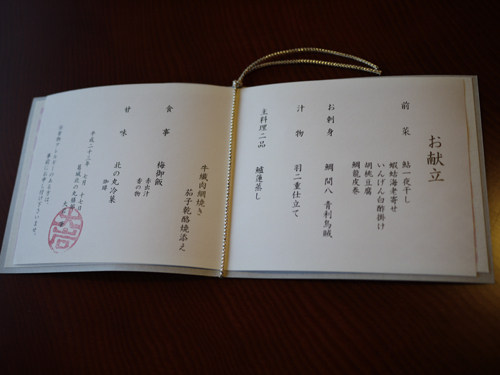 お献立
前菜 鮎一夜干し
蝦蛄海老寄せ
いんげん白酢掛け
胡桃豆腐
鯛龍皮巻
お刺身 鯛 間八 青利烏賊
汁物 羽二重仕立て
主料理二品 鱸蓮蒸し
牛織肉網焼き
茄子乾酪焼添え
食事 梅御飯
赤出汁
香の物
甘味 北の丸冷菓
珈琲
平成二十三年 七月 十七日
葛城北の丸